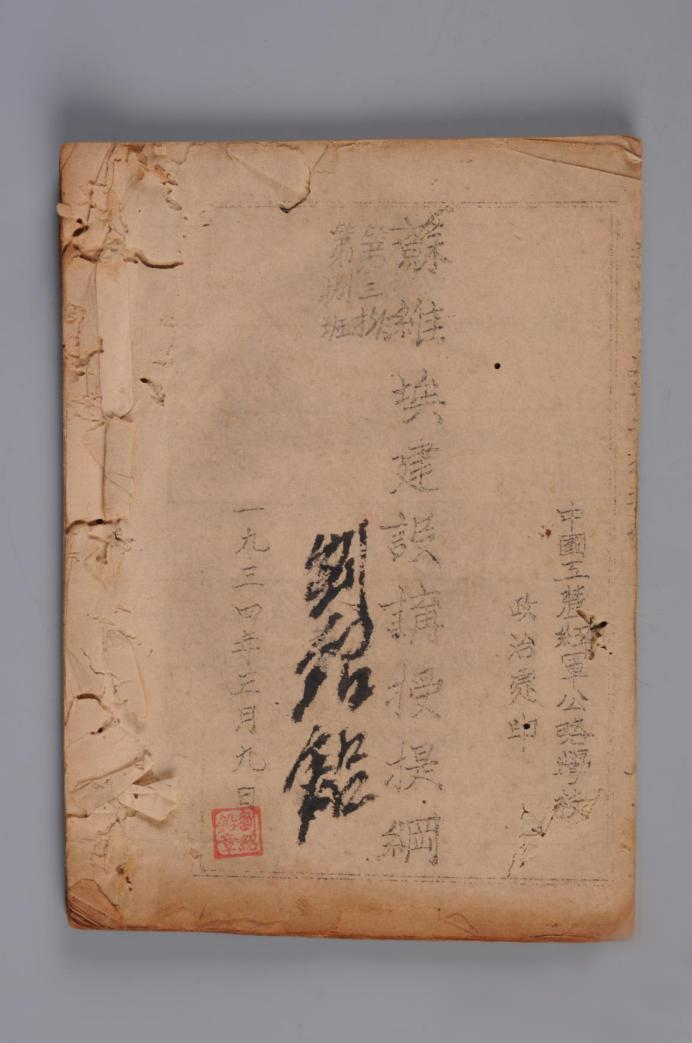 中國工農紅軍公略學校
政治處印
蘇維埃建設講授提綱
第三
第捌班
劉紹
一九三四年三月九日
劉紹
章